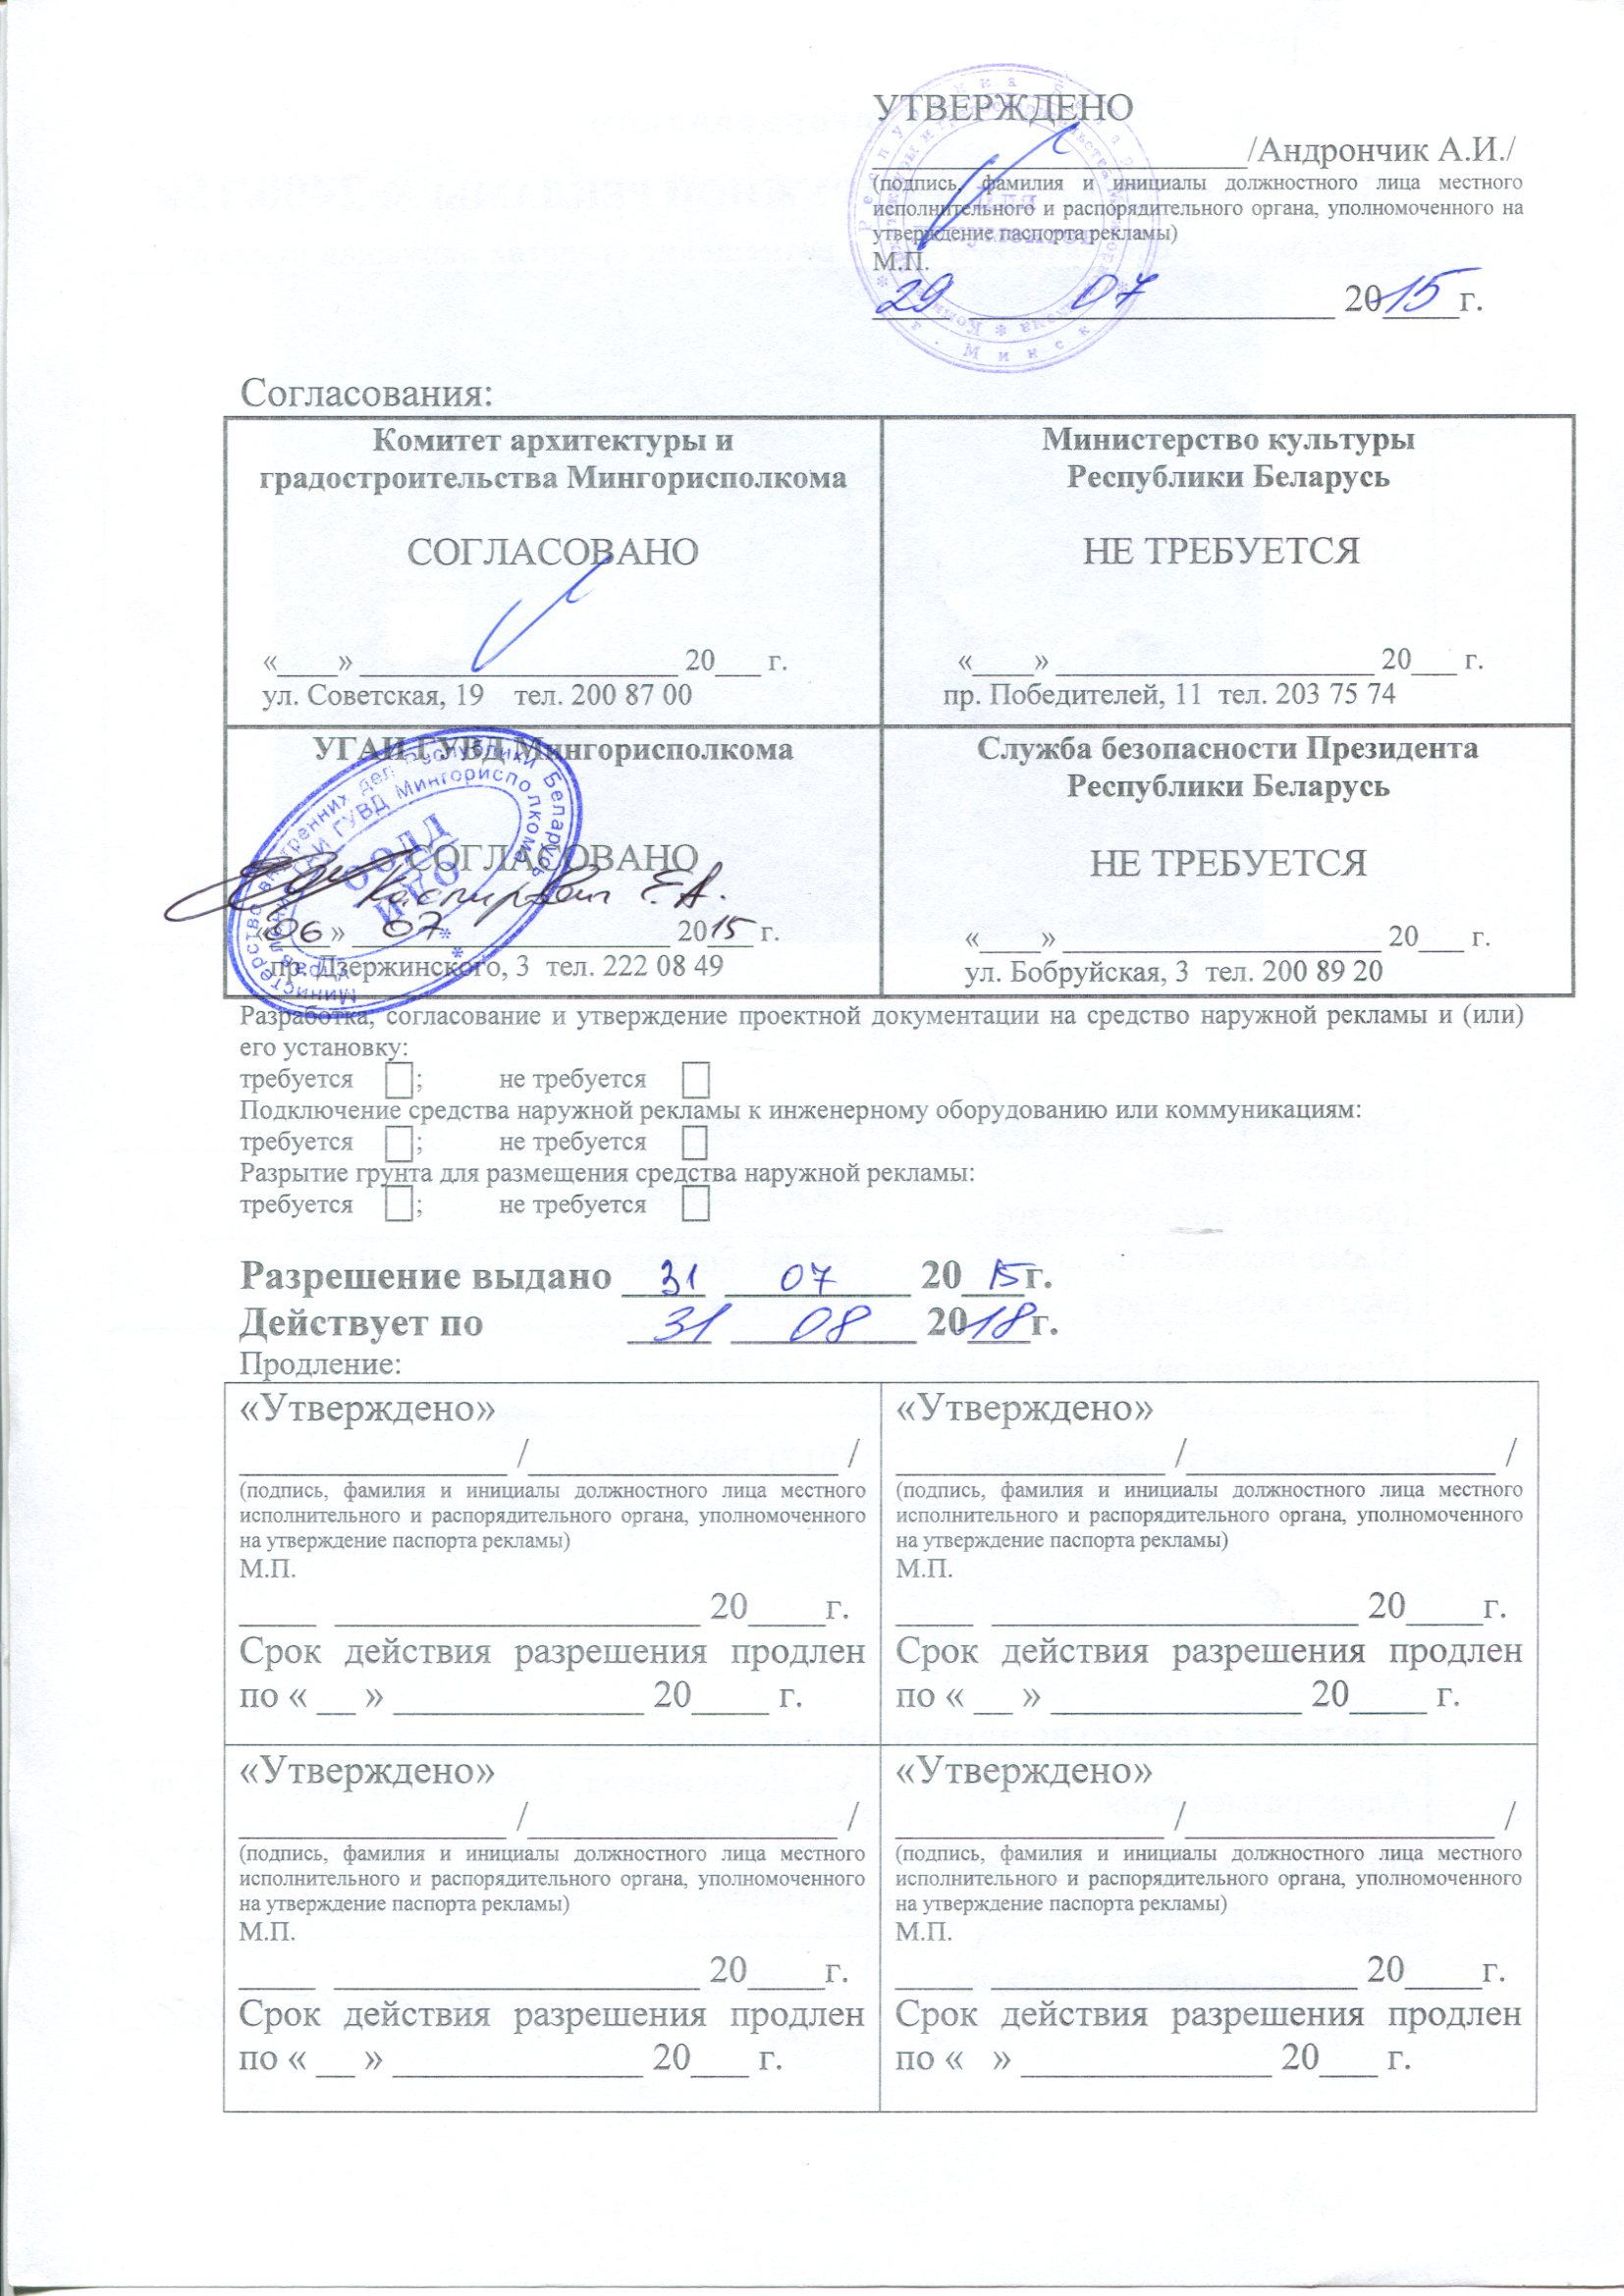 УТВЕРЖДЕНО
/Андрончик А.И./
(подпись, фамилия и инициалы должностного лица местного
исполнительного и распорядительного органа, уполномоченного на
утверждение паспорта рекламы)
М.П.
29 07 2015 г.
Согласования:
Комитет архитектуры и
градостроительства Мингорисполкома
СОГЛАСОВАНО
«____» ____________________ 20___ г.
ул. Советская, 19 тел. 200 87 00
Министерство культуры
Республики Беларусь
НЕ ТРЕБУЕТСЯ
«____» ____________________ 20___ г.
пр. Победителей, 11 тел. 203 75 74
УГАИ ГУВД Мингорисполкома
СОГЛАСОВАНО
Е.А.
«06» 07 2015 г.
пр. Дзержинского, 3 тел. 222 08 49
Служба безопасности Президента
Республики Беларусь
НЕ ТРЕБУЕТСЯ
«____» ____________________ 20___ г.
ул. Бобруйская, 3 тел. 200 89 20
Разработка, согласование и утверждение проектной документации на средство наружной рекламы и (или)
его установку:
требуется ; не требуется
Подключение средства наружной рекламы к инженерному оборудованию или коммуникациям:
требуется ; не требуется
Разрытие грунта для размещения средства наружной рекламы:
требуется ; не требуется
Разрешение выдано 31 07 2015г.
Действует по 31 08 2018г.
Продление:
«Утверждено»
______________ /________________ /
(подпись, фамилия и инициалы должностного лица местного
исполнительного и распорядительного органа, уполномоченного
на утверждение паспорта рекламы)
М.П.
____ ___________________ 20____г.
Срок действия разрешения продлен
по « __ » _____________ 20____ г.
«Утверждено»
______________ /________________ /
(подпись, фамилия и инициалы должностного лица местного
исполнительного и распорядительного органа, уполномоченного
на утверждение паспорта рекламы)
М.П.
____ ___________________ 20____г.
Срок действия разрешения продлен
по « __ » _____________ 20____ г.
«Утверждено»
______________ /________________ /
(подпись, фамилия и инициалы должностного лица местного
исполнительного и распорядительного органа, уполномоченного
на утверждение паспорта рекламы)
М.П.
____ ___________________ 20____г.
Срок действия разрешения продлен
по « __ » _____________ 20___ г.
«Утверждено»
______________ /________________ /
(подпись, фамилия и инициалы должностного лица местного
исполнительного и распорядительного органа, уполномоченного
на утверждение паспорта рекламы)
М.П.
____ ___________________ 20____г.
Срок действия разрешения продлен
по « » _____________ 20___ г.